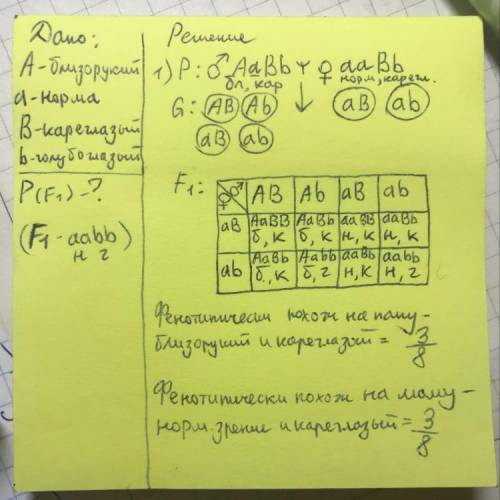 Дано:
А-близорукий
а-норма
В-кареглазый
b-голубоглазый
P(F1)-?
(F1-aabb)
н г
Решение
1) P: ♂ AaBb × ♀ aaBb
бл, кар норм, карегл.
G: AB Ab ↓ aB ab
aB ab
F1:
♀ ♂ AB Ab aB ab
aB AaBB AaBb aaBB aaBb
б, к б, к н, к н, к
ab AaBb Aabb aaBb aabb
б, к б, г н, к н, г
Фенотипически похож на папу-
близорукий и кареглазый = 3/8
Фенотипически похож на маму-
норм. зрение и кареглазый = 3/8